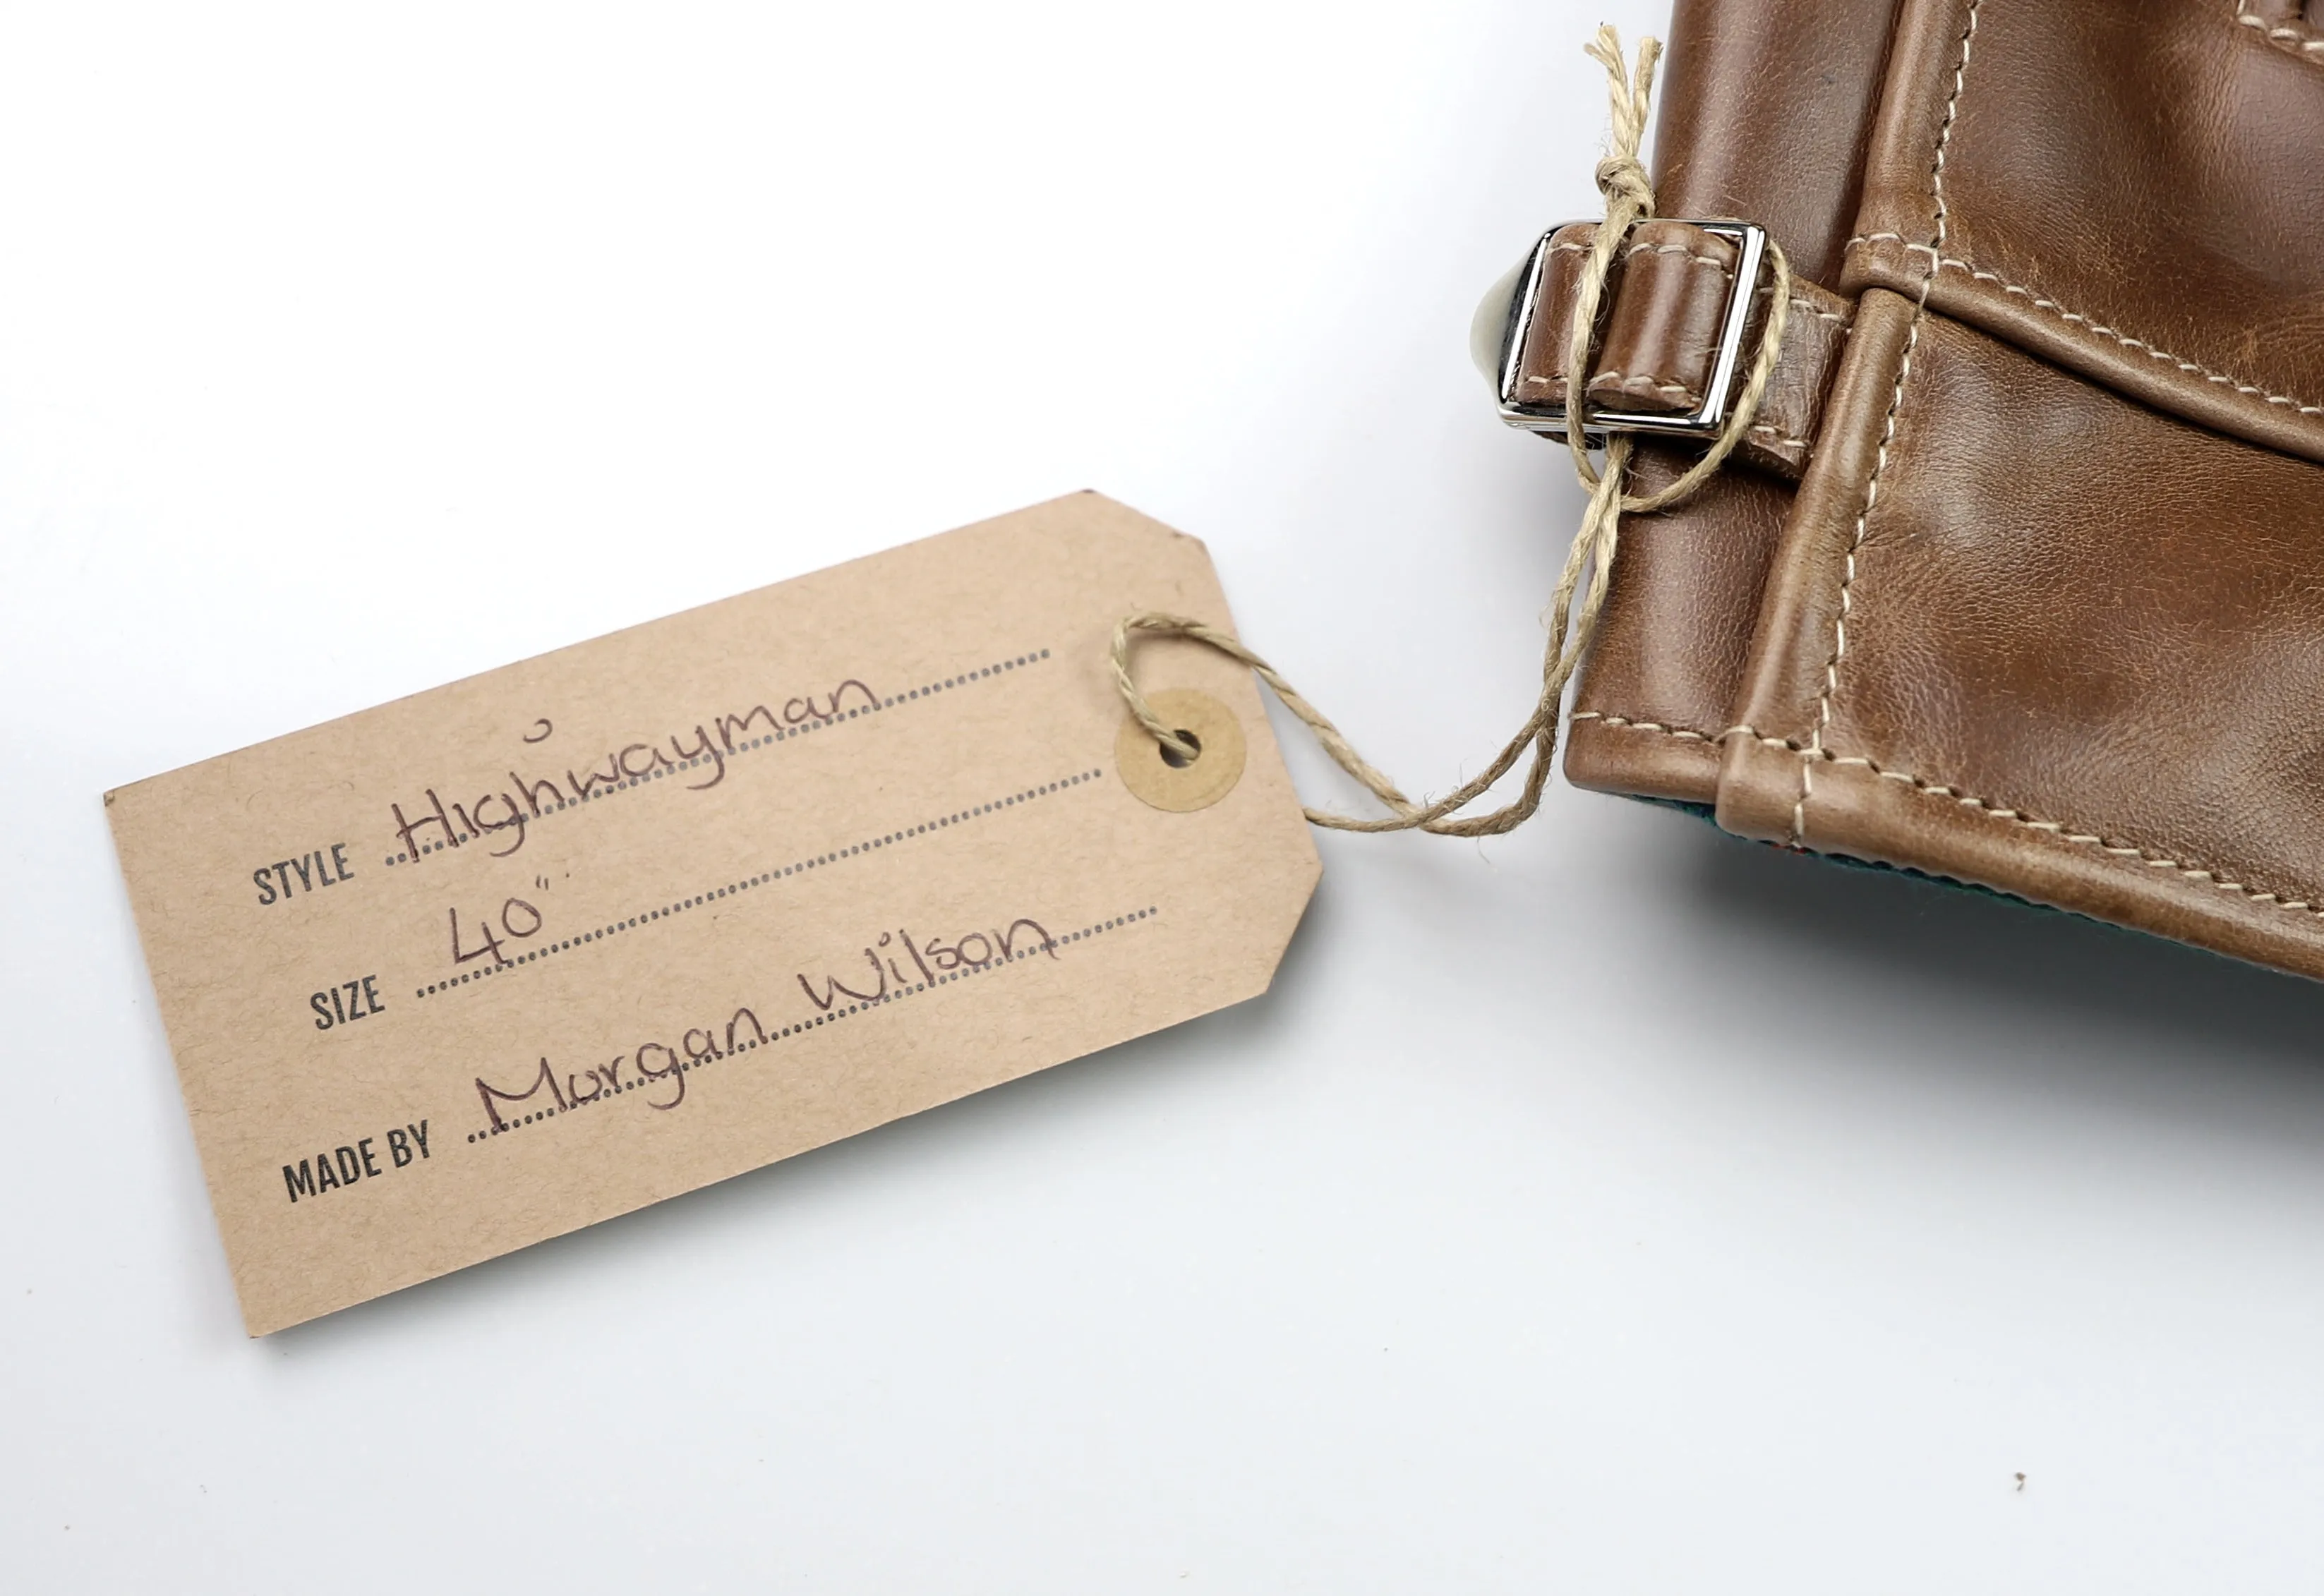 STYLE Highwayman
SIZE 40"
MADE BY Morgan Wilson